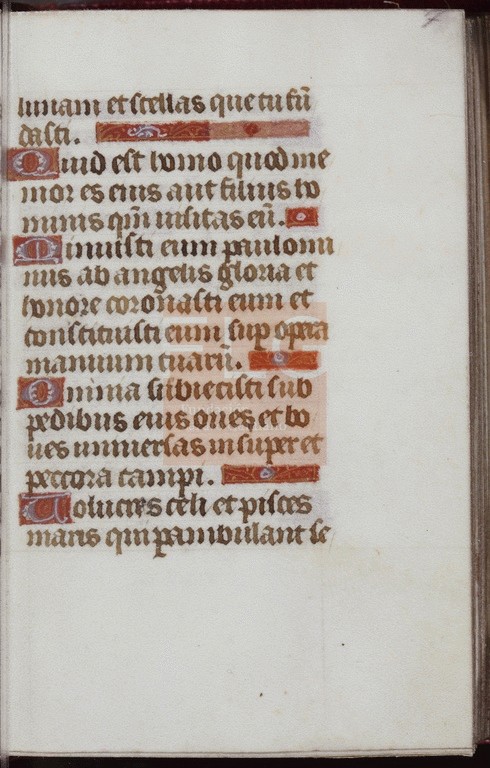 lunam et stellas que tu fū
dasti.
Quid est homo quod me
mor es eius aut filius ho
minis qm̄ uisitas eū.
Minuisti eum paulomi
nus ab angelis gloria et
honore coronasti eum et
constituisti eum sup opera
manuum tuarū.
Omnia subiecisti sub
pedibus eius oues et bo
ues uniuersas insuper et
peccora campi.
Uolucres celi et pisces
maris qui pambulant se